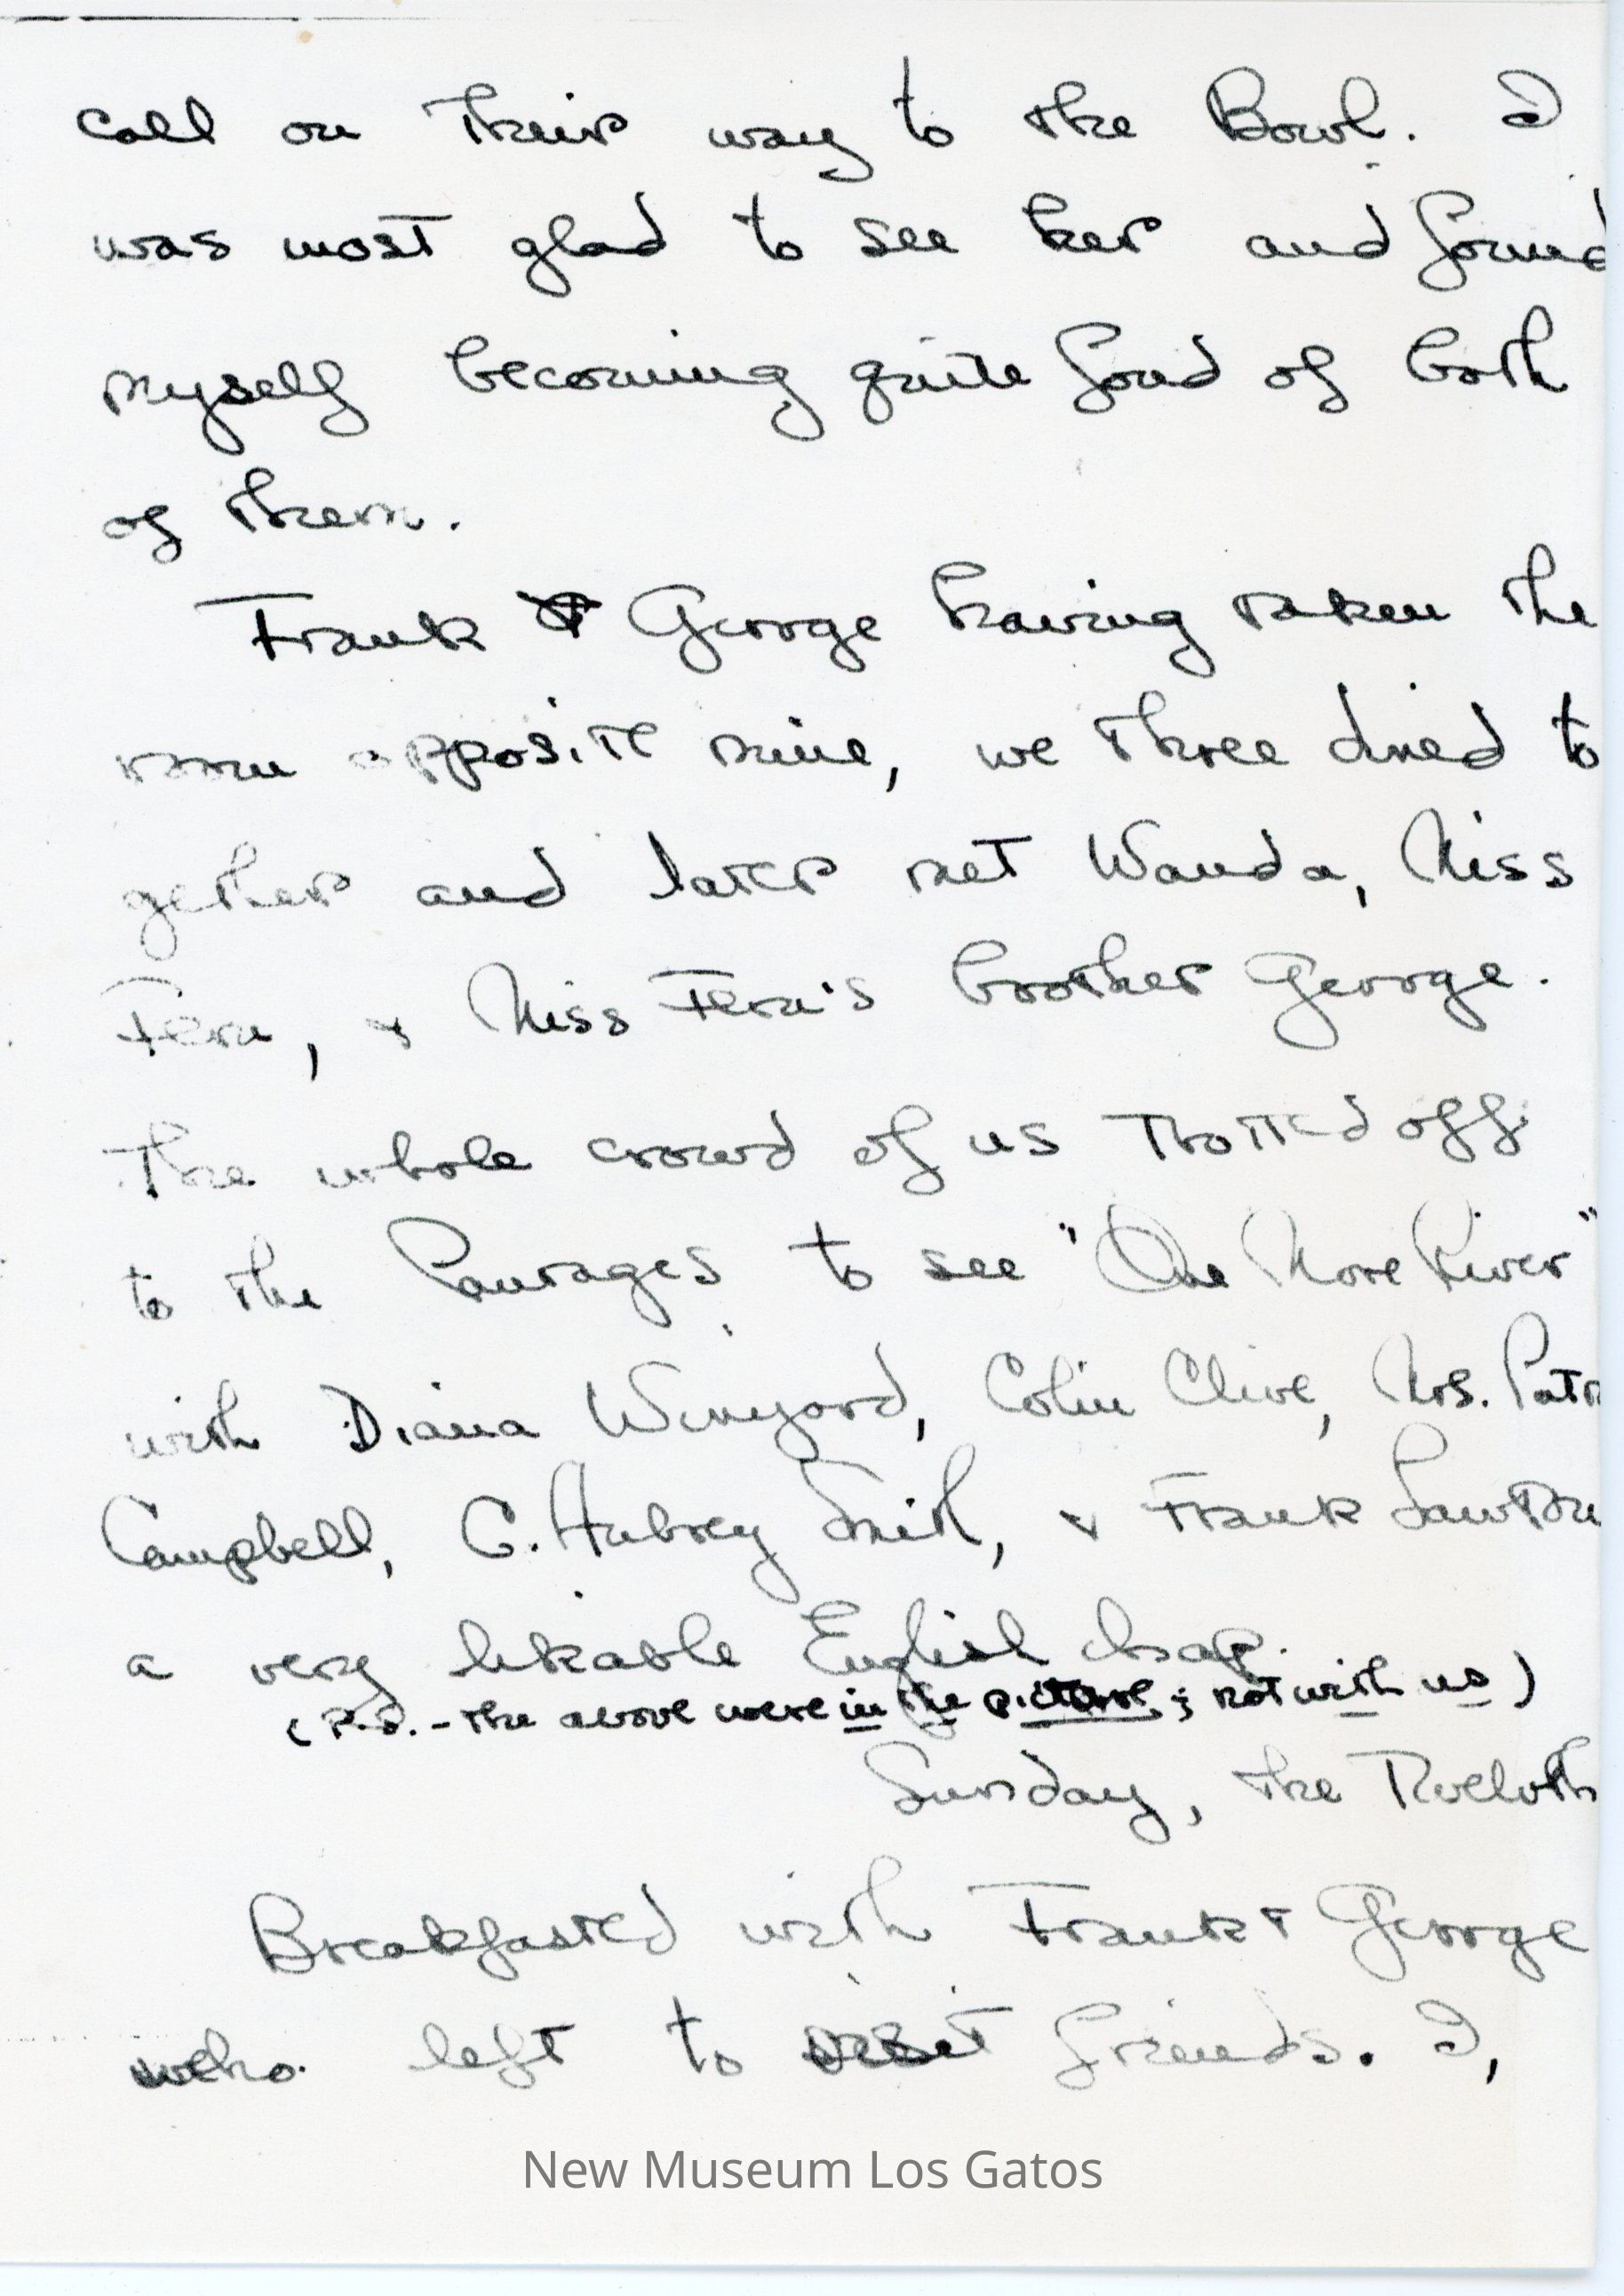 call on their way to the Bowl. I
was most glad to see her and found
myself becoming quite fond of both
of them.
Frank & George having taken the
room opposite mine, we three dined to
gether and later met Wanda, Miss
Fern, & Miss Fern's brother George.
The whole crowd of us trotted off
to the Pantages to see "One More River"
with Diana Winyard, Colin Clive, Mrs. Patr
Campbell, C. Aubrey Smith, & Frank Lawton
a very likable English chap.
(P.S. - the above were in the picture; not with us)
Sunday, the Twelvth
Breakfasted with Frank & George
who left to visit friends. I,
New Museum Los Gatos